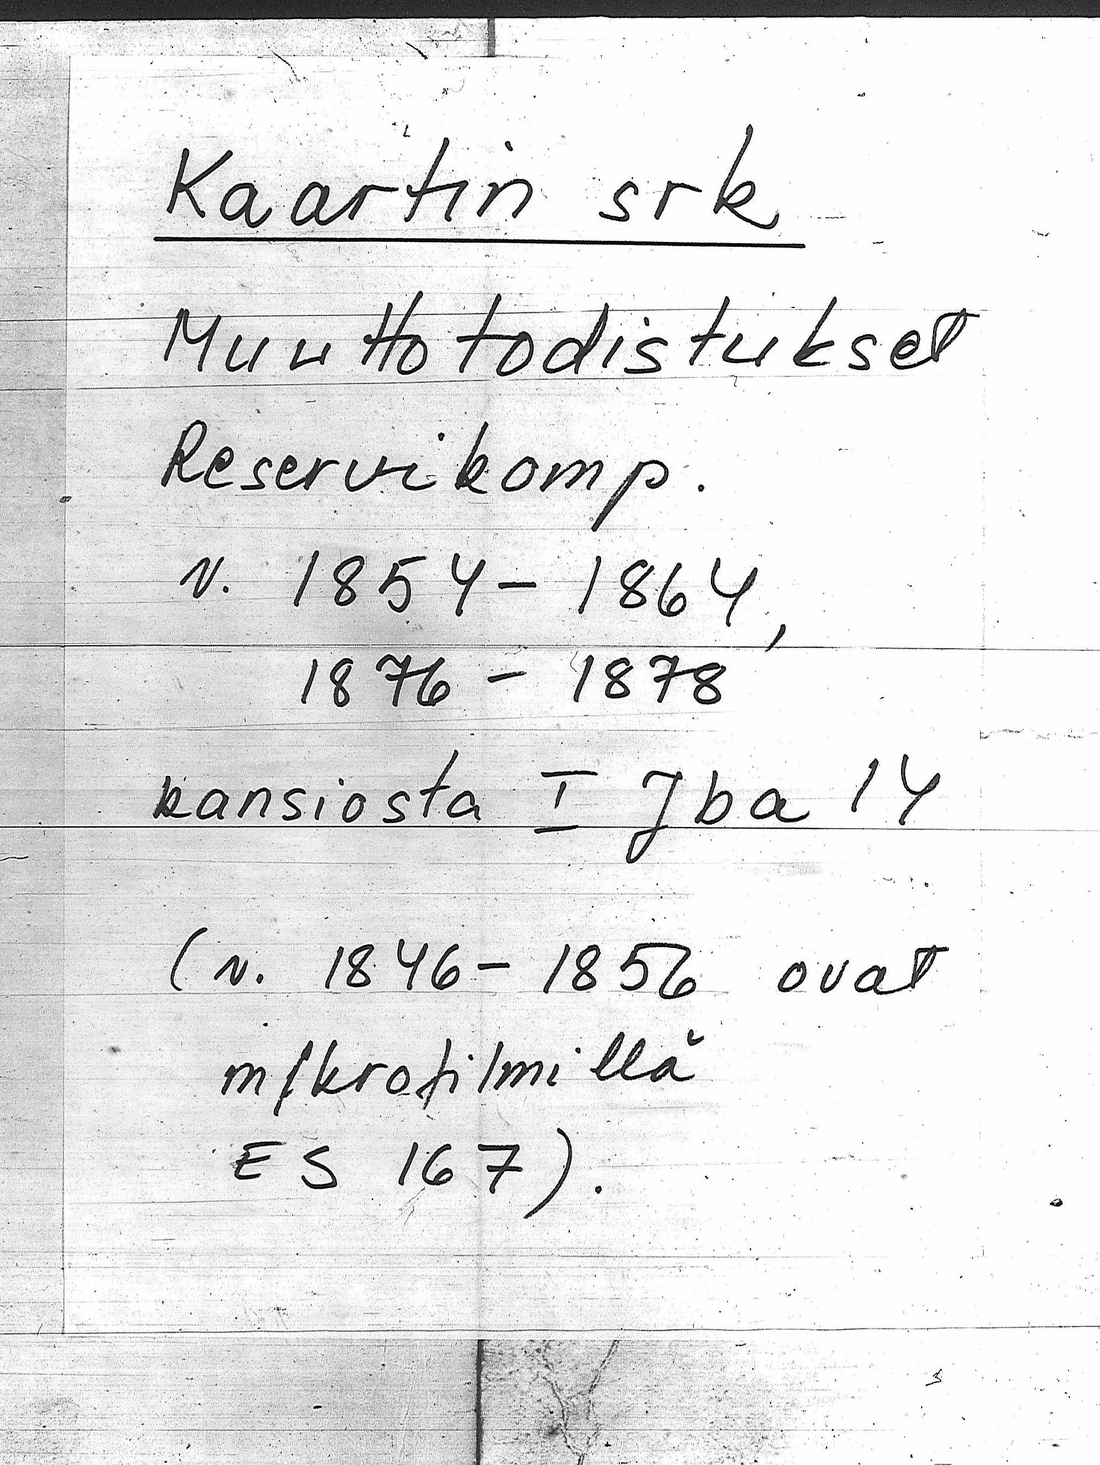 Kaartin srk
Muuttotodistukset
Reservikomp.
v. 1854 - 1864,
1876 - 1878
kansiosta I Jba 14
(v. 1846 - 1856 ovat
mikrofilmillä
ES 167).